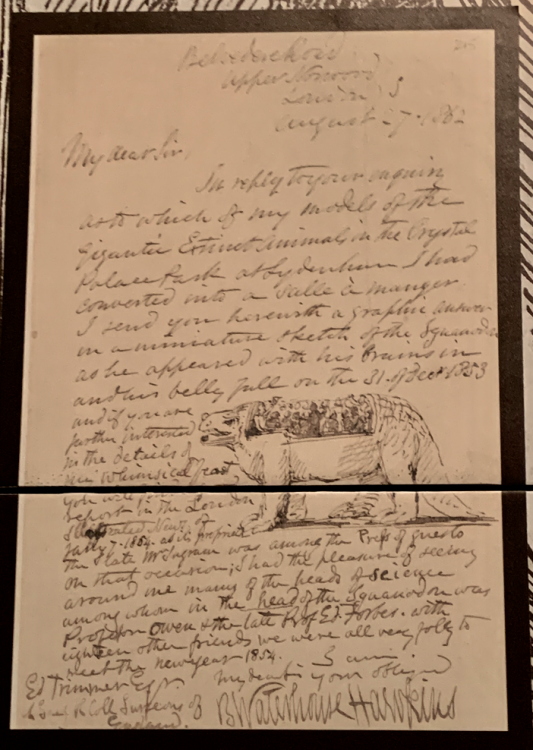 Belvedere Road
Upper Norwood
London S
August 27 1862
My dear Sir,
In reply to your inquiry
as to which of my models of the
Gigantic Extinct Animals in the Crystal
Palace Park at Sydenham I had
converted into a Salle à manger
I send you herewith a graphic answer
in a miniature sketch of the Iguanodon
as he appeared with his brains in
and his belly full on the 31 of Decr 1853
and if you are
further interested
in the details of
whimsical feast
you will
report in the London
Illustrated News of
Jany 7 - 1854. as its
the late Mr Ingram was among the guests
on that occasion; I had the pleasure of seeing
around me many of the heads of science
among whom in the head of the Iguanodon was
Professor Owen & the late Prof Ed. Forbes. with
eighteen other friends we were all very jolly to
meet the new year 1854.
I am
my dear Sir your obliged
B Waterhouse Hawkins
Ed Trimmer Esqr
Coll Surgeons of
England.